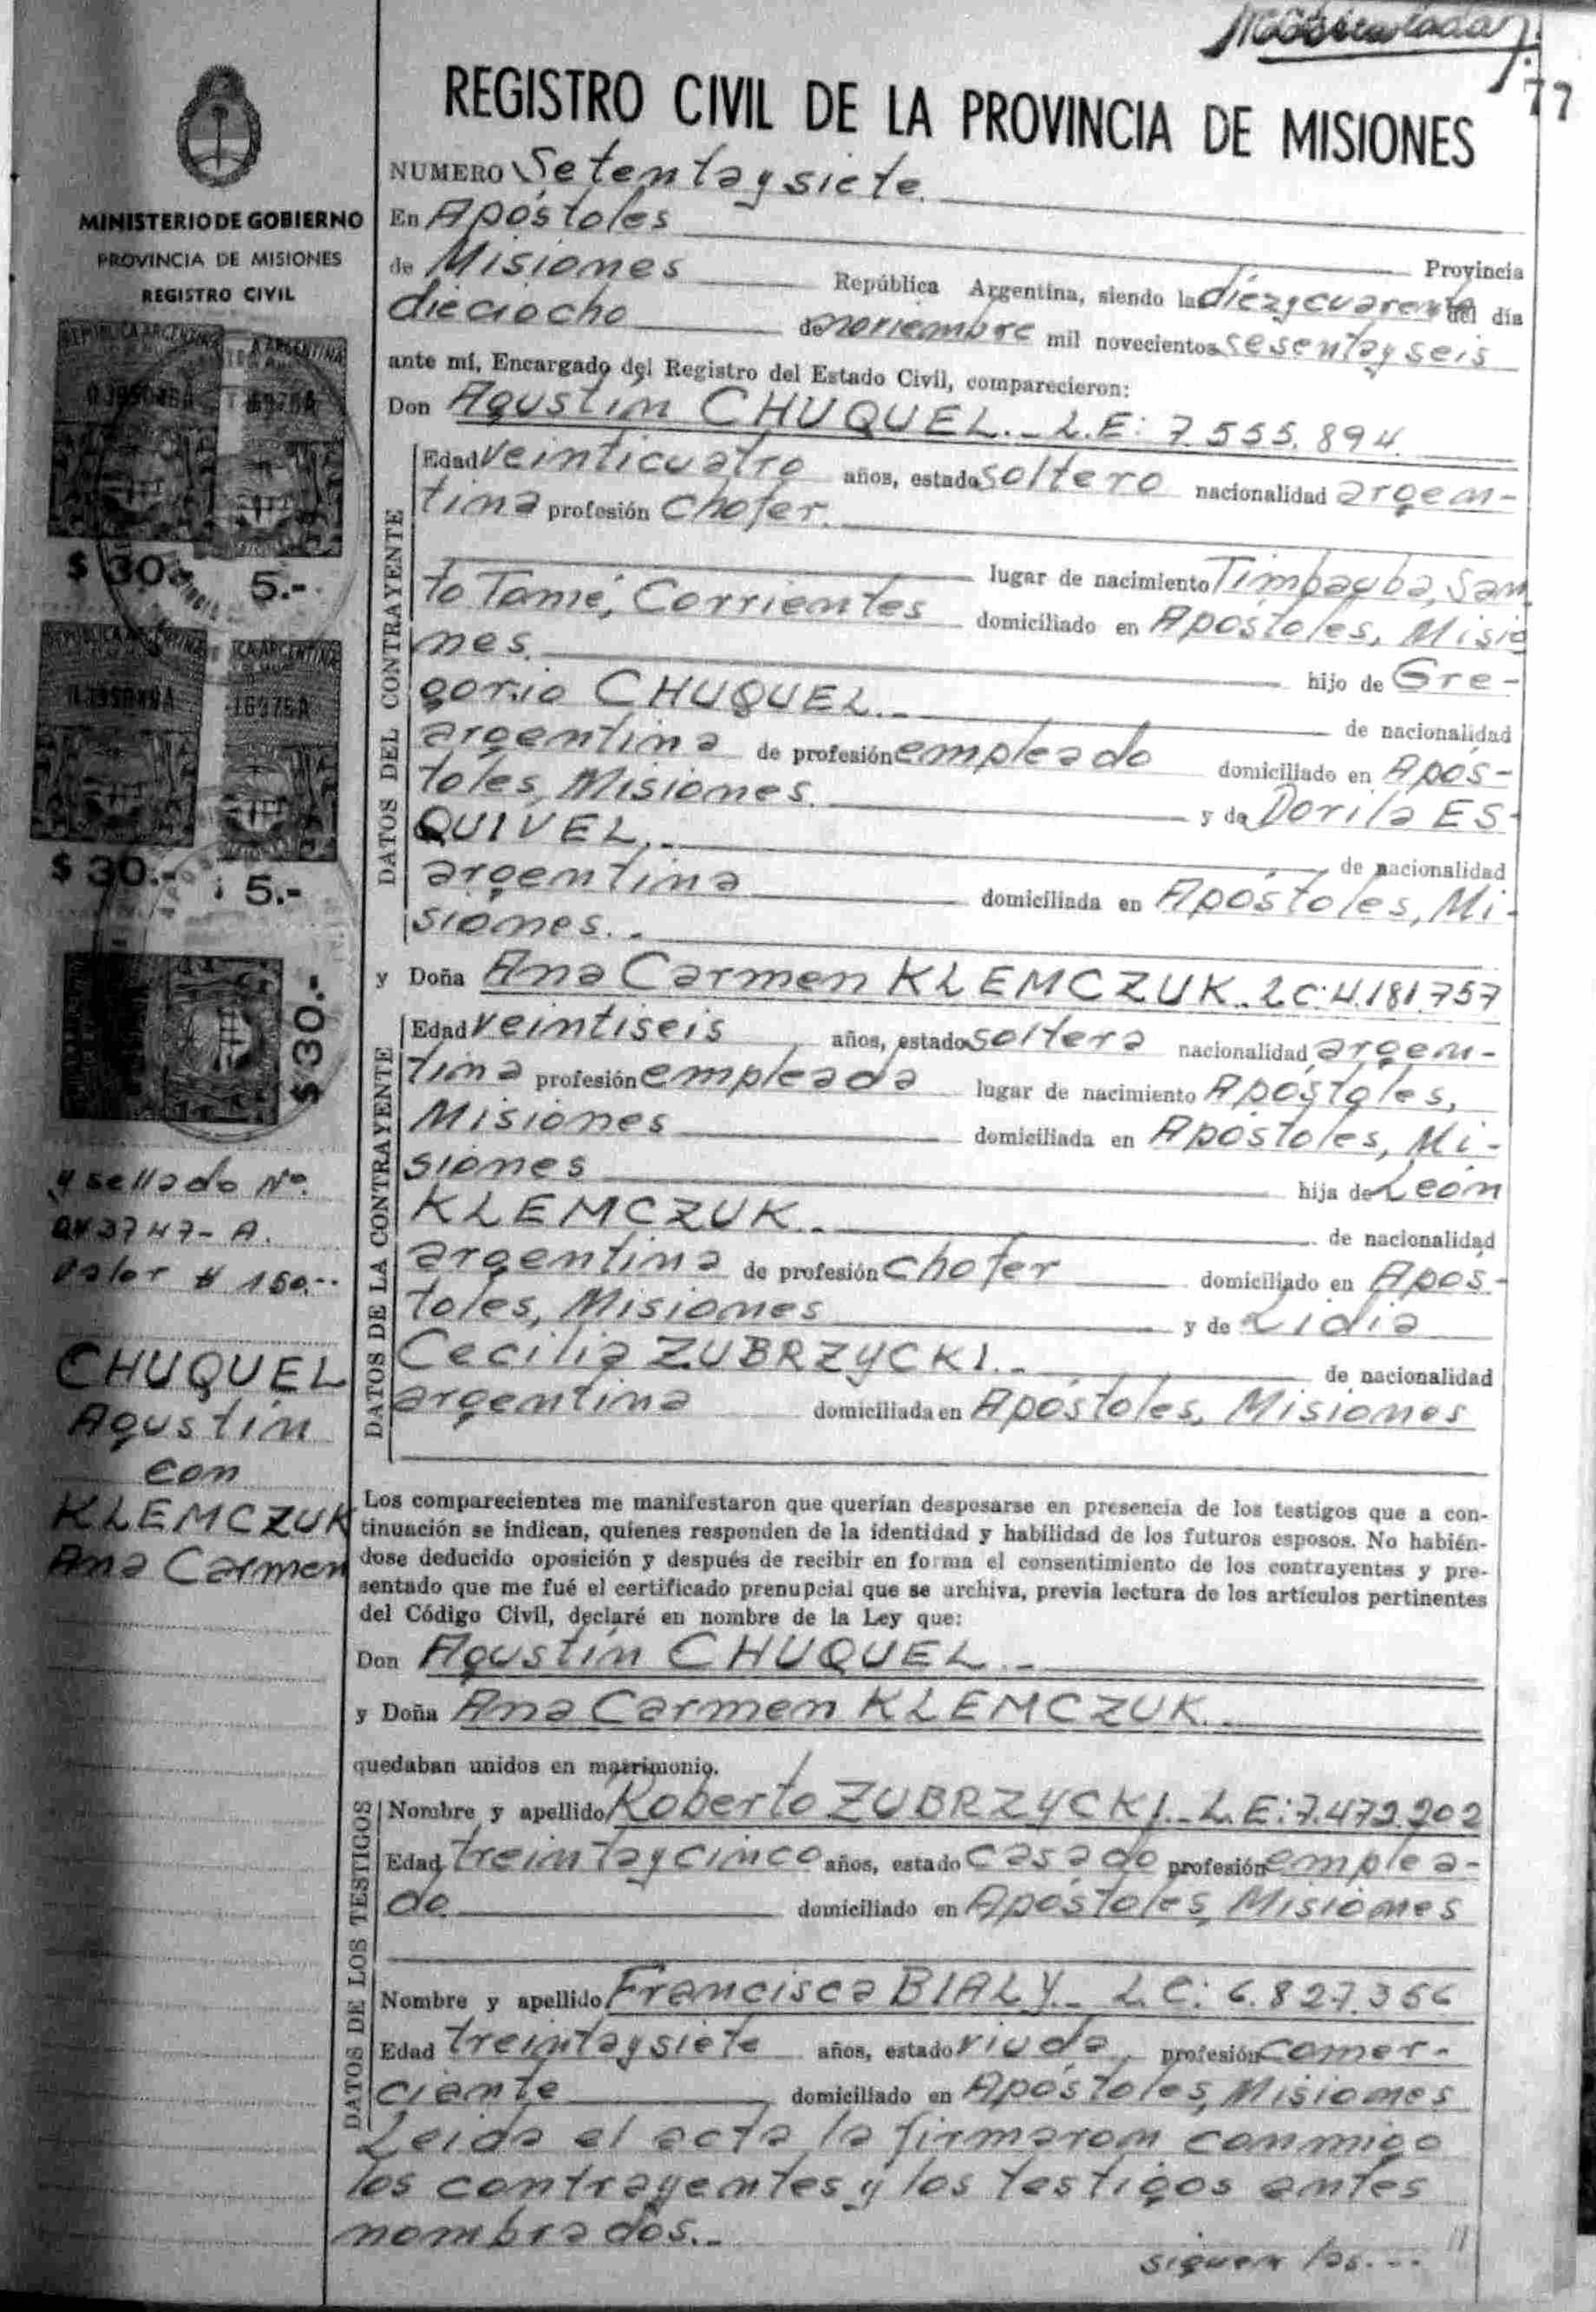 77
REGISTRO CIVIL DE LA PROVINCIA DE MISIONES
MINISTERIO DE GOBIERNO
PROVINCIA DE MISIONES
REGISTRO CIVIL
REPUBLICA ARGENTINA
A ARGENTINA
$ 30.-
5.-
REPUBLICA ARGENTINA
ICA ARGENTINA
16975A
$ 30.-
5.-
$ 30.-
y sellado Nº
Valor $ 150.--
CHUQUEL
Agustín
con
KLEMCZUK
Ana Carmen
NUMERO Setentaysiete.
En Apóstoles Provincia
de Misiones República Argentina, siendo las diezycuarenta del día
dieciocho de noviembre mil novecientos sesentayseis
ante mí, Encargado del Registro del Estado Civil, comparecieron:
Don Agustín CHUQUEL.- L.E: 7.555.894.
DATOS DEL CONTRAYENTE
Edad veinticuatro años, estado soltero nacionalidad argen-
tina profesión chofer.
lugar de nacimiento Timbauba, San
to Tomé, Corrientes domiciliado en Apóstoles, Misio
nes. hijo de Gre-
gorio CHUQUEL.- de nacionalidad
argentina de profesión empleado domiciliado en Após-
toles, Misiones. y de Dorila ES-
QUIVEL.- de nacionalidad
argentina domiciliada en Apóstoles, Mi-
siones.-
y Doña Ana Carmen KLEMCZUK.. LC: 4.181.757
DATOS DE LA CONTRAYENTE
Edad veintiseis años, estado soltera nacionalidad argen-
tina profesión empleada lugar de nacimiento Apóstoles,
Misiones domiciliada en Apóstoles, Mi-
siones hija de León
KLEMCZUK.- de nacionalidad
argentina de profesión chofer domiciliado en Apos-
toles, Misiones y de Lidia
Cecilia ZUBRZYCKI.- de nacionalidad
argentina domiciliada en Apóstoles, Misiones
Los comparecientes me manifestaron que querían desposarse en presencia de los testigos que a con-
tinuación se indican, quienes responden de la identidad y habilidad de los futuros esposos. No habién-
dose deducido oposición y después de recibir en forma el consentimiento de los contrayentes y pre-
sentado que me fué el certificado prenupcial que se archiva, previa lectura de los artículos pertinentes
del Código Civil, declaré en nombre de la Ley que:
Don Agustín CHUQUEL.-
y Doña Ana Carmen KLEMCZUK.
quedaban unidos en matrimonio.
DATOS DE LOS TESTIGOS
Nombre y apellido Roberto ZUBRZYCKI.- L.E: 7.472.202
Edad treintaycinco años, estado casado profesión emplea-
do domiciliado en Apóstoles, Misiones
Nombre y apellido Francisca BIALY.- L.C: 6.827.366
Edad treintaysiete años, estado viuda profesión comer-
ciante domiciliado en Apóstoles, Misiones
Leida el acta la firmaron conmigo
los contrayentes y los testigos antes
nombrados.-
siguen las... //